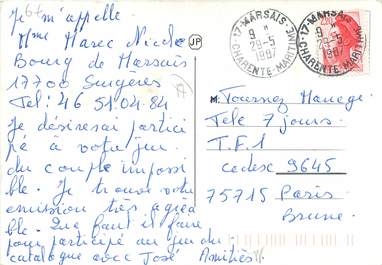 Je m'appelle
Mme Marec Nicole
Bourg de Marsais
17700 Surgères
Tel: 46 51 04 84
Je désirerai partici
pé à votre jeu
du couple impossi
ble. Je trouve votre
émission très agréa
ble. Que faut il faire
pour participé au jeu du
catalogue avec José
Amitiés
JP
17-MARSAIS
9 H
29-5
1987
CHARENTE-MARITIME
17-MARSAIS
9 H
29-5
1987
CHARENTE-MARITIME
2,20
M. Tournez Manege
Tele 7 jours.
T.F.1
cedesc 9645
75715 Paris
Brune.